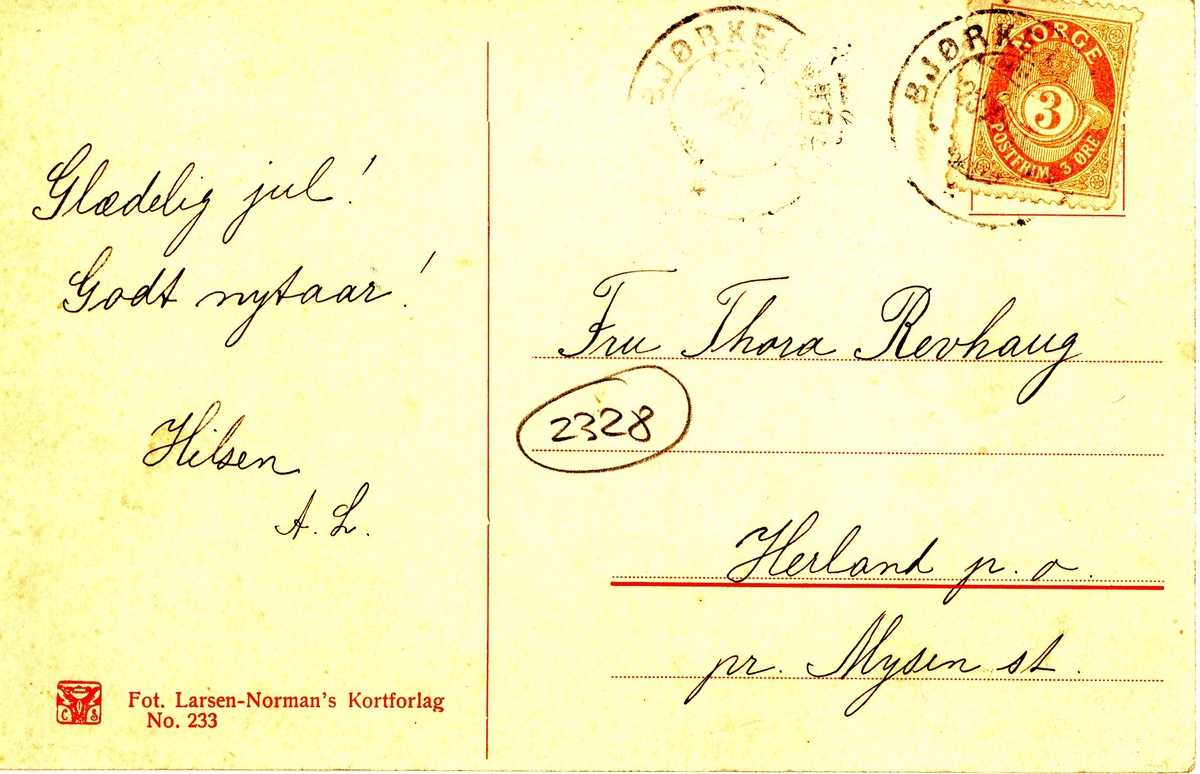 Glædelig jul!
Godt nytaar!
Hilsen
A. L.
Fot. Larsen-Norman's Kortforlag
No. 233
C S
BJØRKE
BJØRK
NORGE
3
POSTFRIM. 3 ØRE
Fru Thora Revhaug
2328
Herland p. o.
pr. Mysen st.